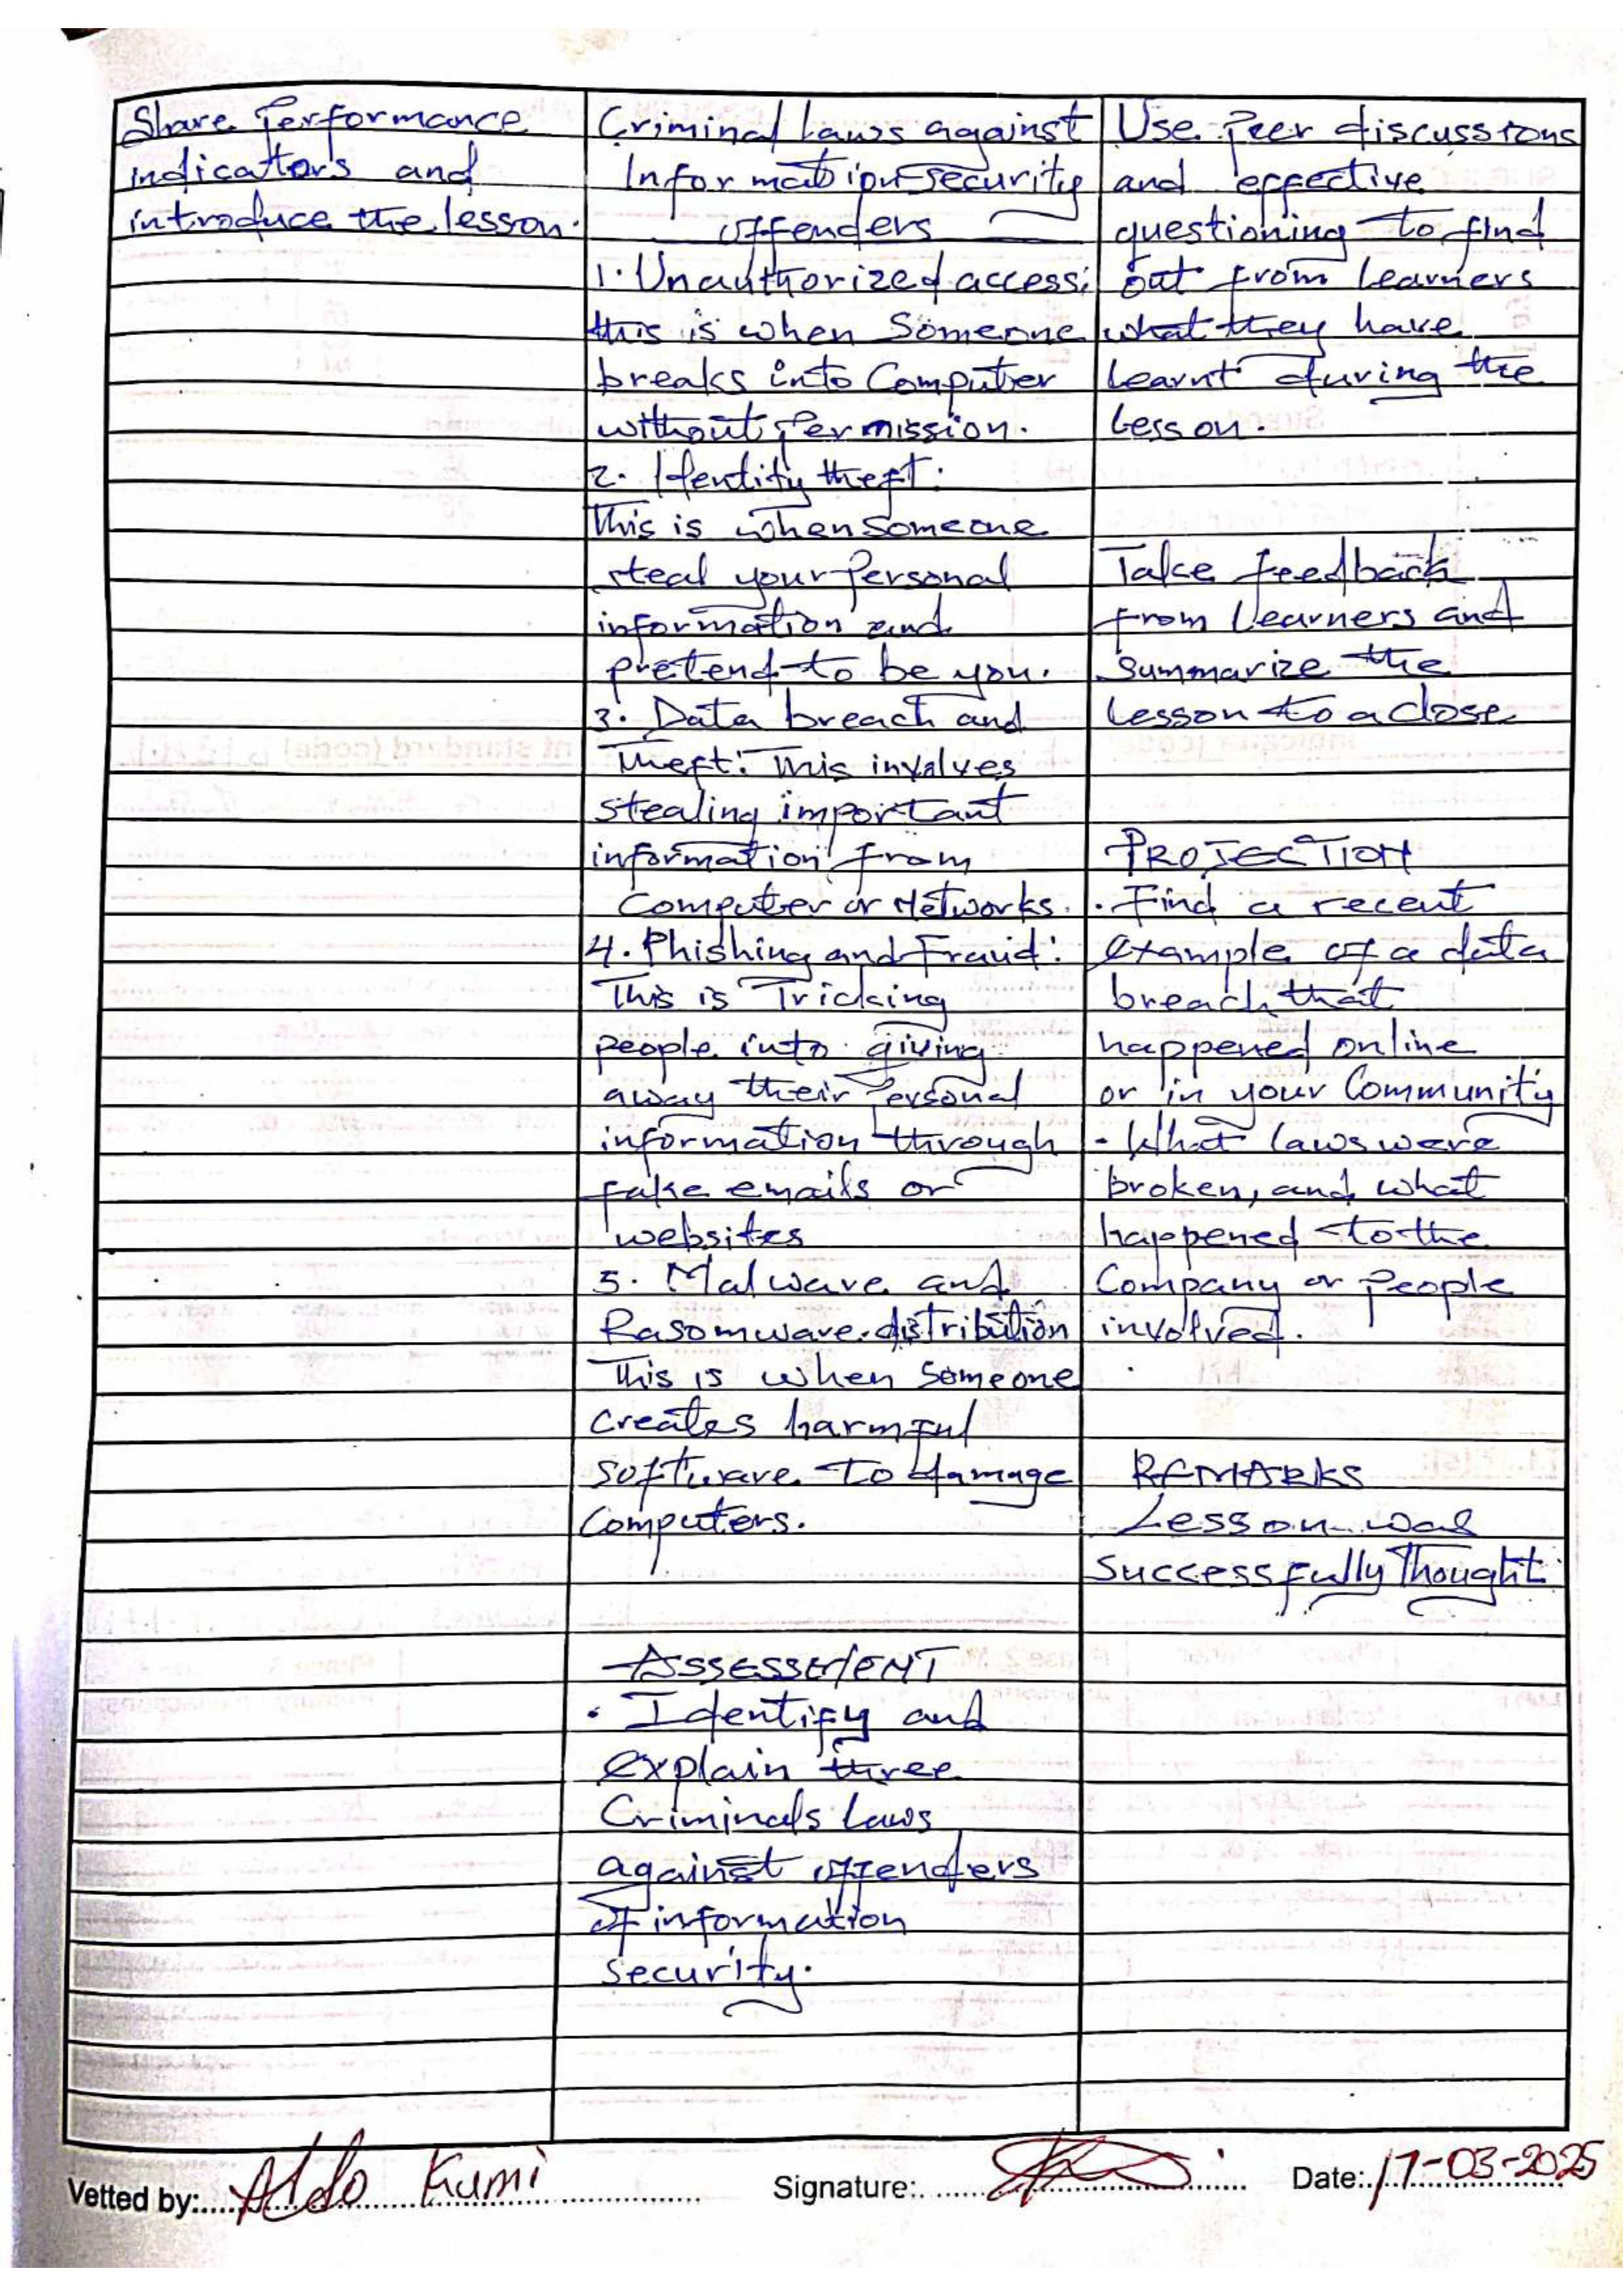 Share Performance
indicators and
introduce the lesson.
Criminal Laws against
Information security
offenders
1. Unauthorized access:
this is when Someone
breaks into Computer
without Permission.
2. Identity theft:
This is when someone
steal your Personal
information and
pretend to be you.
3. Data breach and
Theft: This involves
stealing important
information from
Computer or Networks.
4. Phishing and Fraud:
This is Tricking
people into giving
away their Personal
information through
fake emails or
websites
5. Malware and
Rasomware distribution
This is when Someone
creates harmful
software to damage
Computers.
ASSESSMENT
· Identify and
explain three
Criminals Laws
against offenders
of information
security.
Use Peer discussions
and effective
questioning to find
out from learners
what they have
learnt during the
lesson.
Take feedback
from learners and
summarize the
lesson to a close
PROJECTION
· Find a recent
example of a data
breach that
happened online
or in your Community
- What laws were
broken, and what
happened to the
Company or People
involved.
REMARKS
Lesson was
Successfully Thought
Vetted by: Aldo Kumi Signature: Date: 17-03-2025